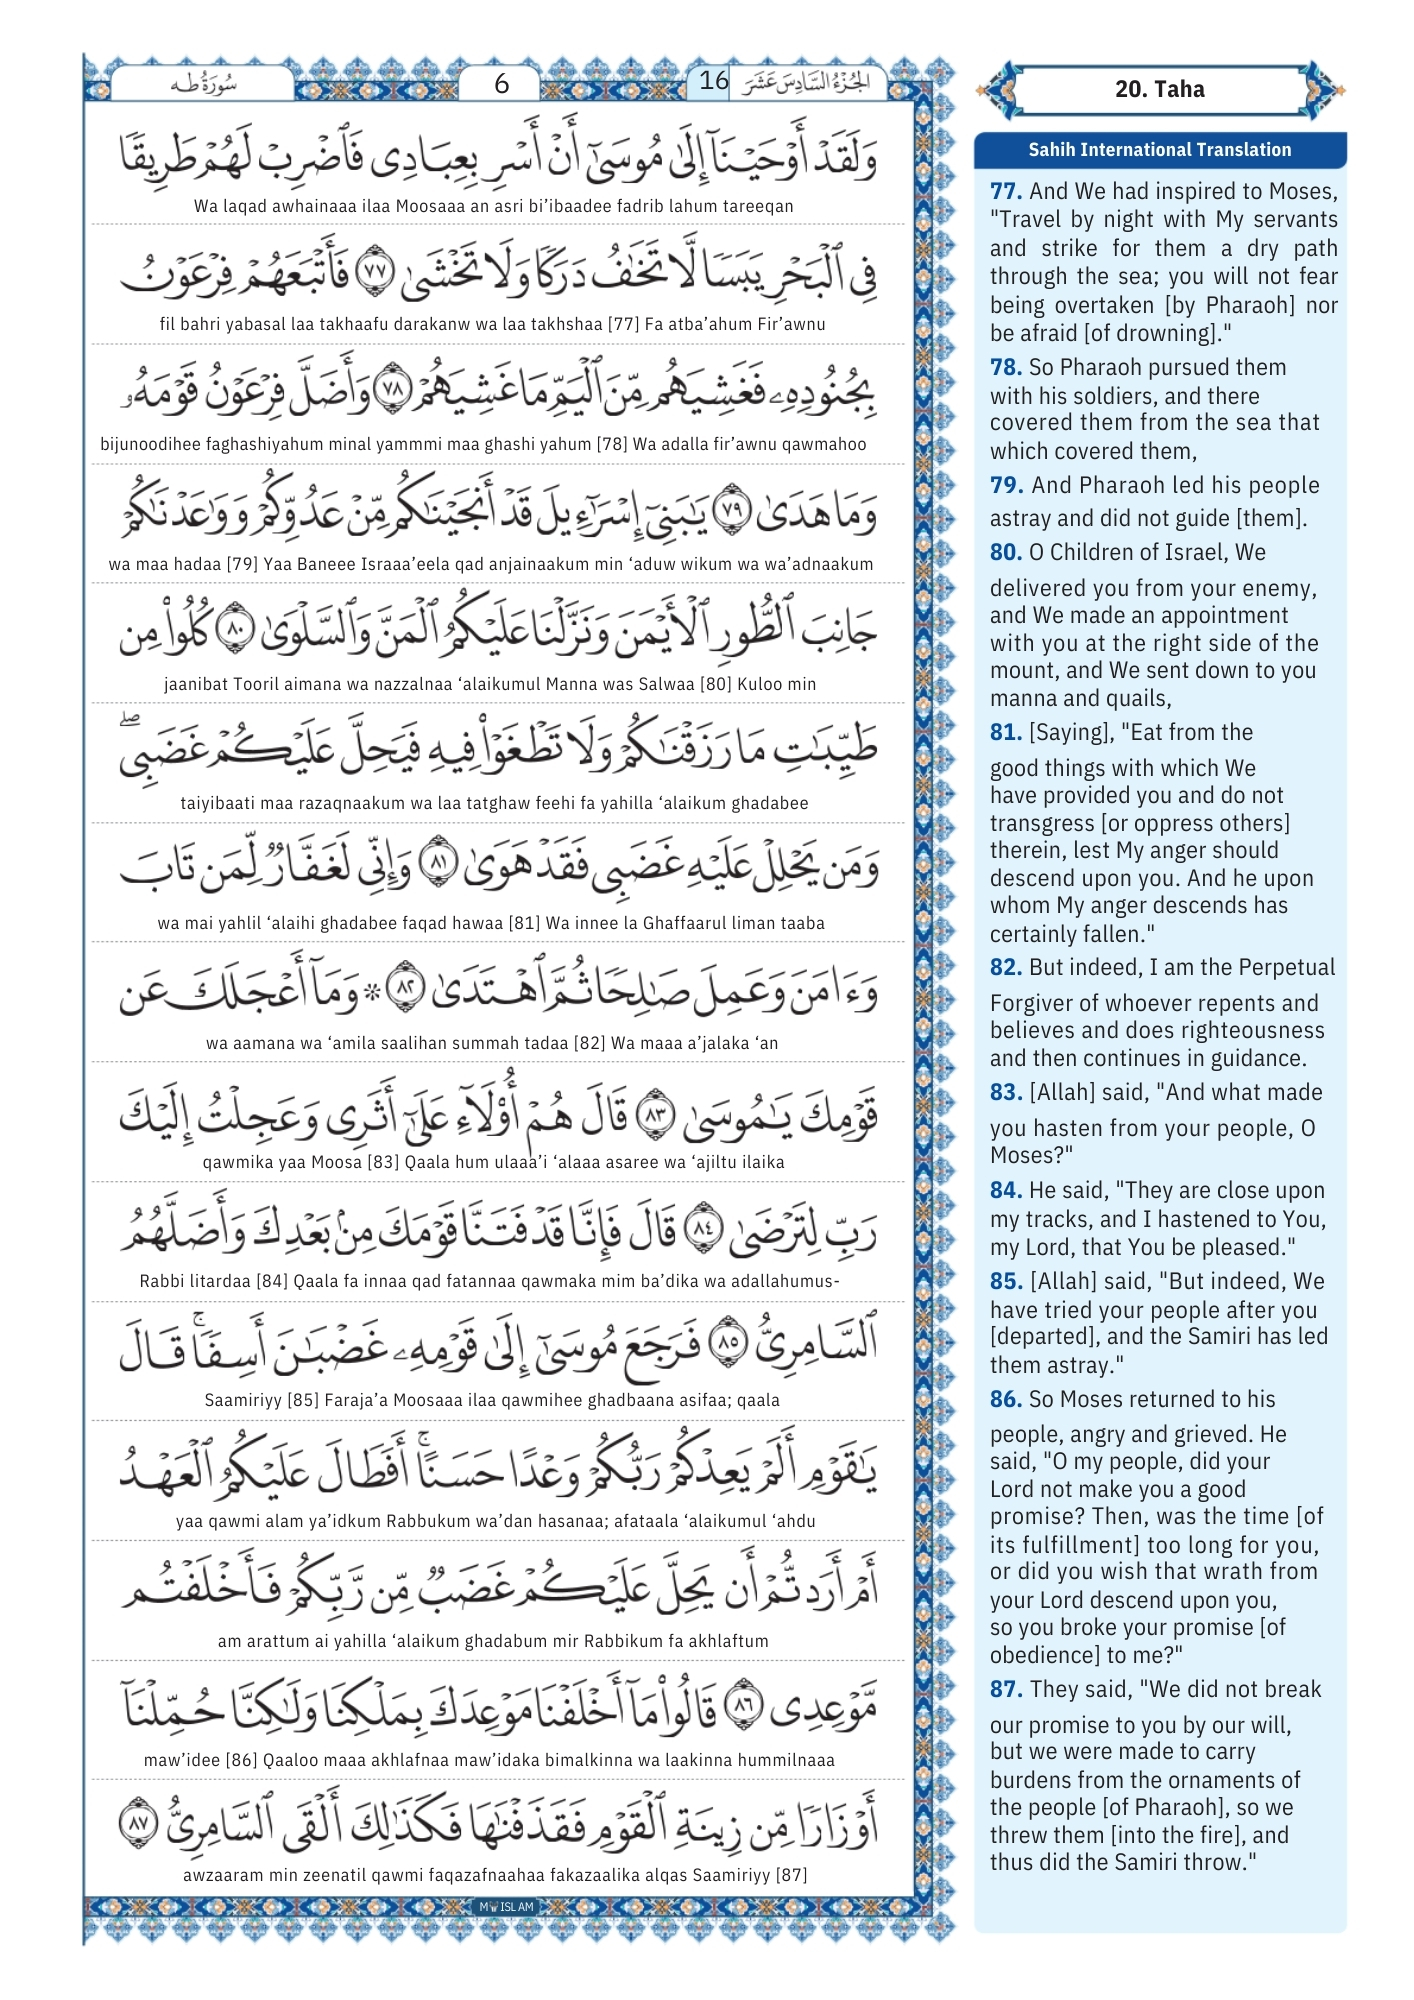 سُورَةُ طه
6
16
الجُزْءُ السَّادِسَ عَشَرَ
وَلَقَدْ أَوْحَيْنَآ إِلَىٰ مُوسَىٰٓ أَنْ أَسْرِ بِعِبَادِى فَٱضْرِبْ لَهُمْ طَرِيقًا
Wa laqad awhainaaa ilaa Moosaaa an asri bi’ibaadee fadrib lahum tareeqan
فِى ٱلْبَحْرِ يَبَسًا لَّا تَخَـٰفُ دَرَكًا وَلَا تَخْشَىٰ ٧٧ فَأَتْبَعَهُمْ فِرْعَوْنُ
fil bahri yabasal laa takhaafu darakanw wa laa takhshaa [77] Fa atba’ahum Fir’awnu
بِجُنُودِهِۦ فَغَشِيَهُم مِّنَ ٱلْيَمِّ مَا غَشِيَهُمْ ٧٨ وَأَضَلَّ فِرْعَوْنُ قَوْمَهُۥ
bijunoodihee faghashiyahum minal yammmi maa ghashi yahum [78] Wa adalla fir’awnu qawmahoo
وَمَا هَدَىٰ ٧٩ يَـٰبَنِىٓ إِسْرَٰٓءِيلَ قَدْ أَنجَيْنَـٰكُم مِّنْ عَدُوِّكُمْ وَوَٰعَدْنَـٰكُمْ
wa maa hadaa [79] Yaa Baneee Israaa’eela qad anjainaakum min ‘aduw wikum wa wa’adnaakum
جَانِبَ ٱلطُّورِ ٱلْأَيْمَنَ وَنَزَّلْنَا عَلَيْكُمُ ٱلْمَنَّ وَٱلسَّلْوَىٰ ٨٠ كُلُوا۟ مِن
jaanibat Tooril aimana wa nazzalnaa ‘alaikumul Manna was Salwaa [80] Kuloo min
طَيِّبَـٰتِ مَا رَزَقْنَـٰكُمْ وَلَا تَطْغَوْا۟ فِيهِ فَيَحِلَّ عَلَيْكُمْ غَضَبِى ۖ
taiyibaati maa razaqnaakum wa laa tatghaw feehi fa yahilla ‘alaikum ghadabee
وَمَن يَحْلِلْ عَلَيْهِ غَضَبِى فَقَدْ هَوَىٰ ٨١ وَإِنِّى لَغَفَّارٌ لِّمَن تَابَ
wa mai yahlil ‘alaihi ghadabee faqad hawaa [81] Wa innee la Ghaffaarul liman taaba
وَءَامَنَ وَعَمِلَ صَـٰلِحًا ثُمَّ ٱهْتَدَىٰ ٨٢ * وَمَآ أَعْجَلَكَ عَن
wa aamana wa ‘amila saalihan summah tadaa [82] Wa maaa a’jalaka ‘an
قَوْمِكَ يَـٰمُوسَىٰ ٨٣ قَالَ هُمْ أُو۟لَآءِ عَلَىٰٓ أَثَرِى وَعَجِلْتُ إِلَيْكَ
qawmika yaa Moosa [83] Qaala hum ulaaa’i ‘alaaa asaree wa ‘ajiltu ilaika
رَبِّ لِتَرْضَىٰ ٨٤ قَالَ فَإِنَّا قَدْ فَتَنَّا قَوْمَكَ مِنۢ بَعْدِكَ وَأَضَلَّهُمُ
Rabbi litardaa [84] Qaala fa innaa qad fatannaa qawmaka mim ba’dika wa adallahumus-
ٱلسَّامِرِىُّ ٨٥ فَرَجَعَ مُوسَىٰٓ إِلَىٰ قَوْمِهِۦ غَضْبَـٰنَ أَسِفًا ۚ قَالَ
Saamiriyy [85] Faraja’a Moosaaa ilaa qawmihee ghadbaana asifaa; qaala
يَـٰقَوْمِ أَلَمْ يَعِدْكُمْ رَبُّكُمْ وَعْدًا حَسَنًا ۚ أَفَطَالَ عَلَيْكُمُ ٱلْعَهْدُ
yaa qawmi alam ya’idkum Rabbukum wa’dan hasanaa; afataala ‘alaikumul ‘ahdu
أَمْ أَرَدتُّمْ أَن يَحِلَّ عَلَيْكُمْ غَضَبٌ مِّن رَّبِّكُمْ فَأَخْلَفْتُم
am arattum ai yahilla ‘alaikum ghadabum mir Rabbikum fa akhlaftum
مَّوْعِدِى ٨٦ قَالُوا۟ مَآ أَخْلَفْنَا مَوْعِدَكَ بِمَلْكِنَا وَلَـٰكِنَّا حُمِّلْنَآ
maw’idee [86] Qaaloo maaa akhlafnaa maw’idaka bimalkinna wa laakinna hummilnaaa
أَوْزَارًا مِّن زِينَةِ ٱلْقَوْمِ فَقَذَفْنَـٰهَا فَكَذَٰلِكَ أَلْقَى ٱلسَّامِرِىُّ ٨٧
awzaaram min zeenatil qawmi faqazafnaahaa fakazaalika alqas Saamiriyy [87]
20. Taha
Sahih International Translation
77. And We had inspired to Moses,
"Travel by night with My servants
and strike for them a dry path
through the sea; you will not fear
being overtaken [by Pharaoh] nor
be afraid [of drowning]."
78. So Pharaoh pursued them
with his soldiers, and there
covered them from the sea that
which covered them,
79. And Pharaoh led his people
astray and did not guide [them].
80. O Children of Israel, We
delivered you from your enemy,
and We made an appointment
with you at the right side of the
mount, and We sent down to you
manna and quails,
81. [Saying], "Eat from the
good things with which We
have provided you and do not
transgress [or oppress others]
therein, lest My anger should
descend upon you. And he upon
whom My anger descends has
certainly fallen."
82. But indeed, I am the Perpetual
Forgiver of whoever repents and
believes and does righteousness
and then continues in guidance.
83. [Allah] said, "And what made
you hasten from your people, O
Moses?"
84. He said, "They are close upon
my tracks, and I hastened to You,
my Lord, that You be pleased."
85. [Allah] said, "But indeed, We
have tried your people after you
[departed], and the Samiri has led
them astray."
86. So Moses returned to his
people, angry and grieved. He
said, "O my people, did your
Lord not make you a good
promise? Then, was the time [of
its fulfillment] too long for you,
or did you wish that wrath from
your Lord descend upon you,
so you broke your promise [of
obedience] to me?"
87. They said, "We did not break
our promise to you by our will,
but we were made to carry
burdens from the ornaments of
the people [of Pharaoh], so we
threw them [into the fire], and
thus did the Samiri throw."